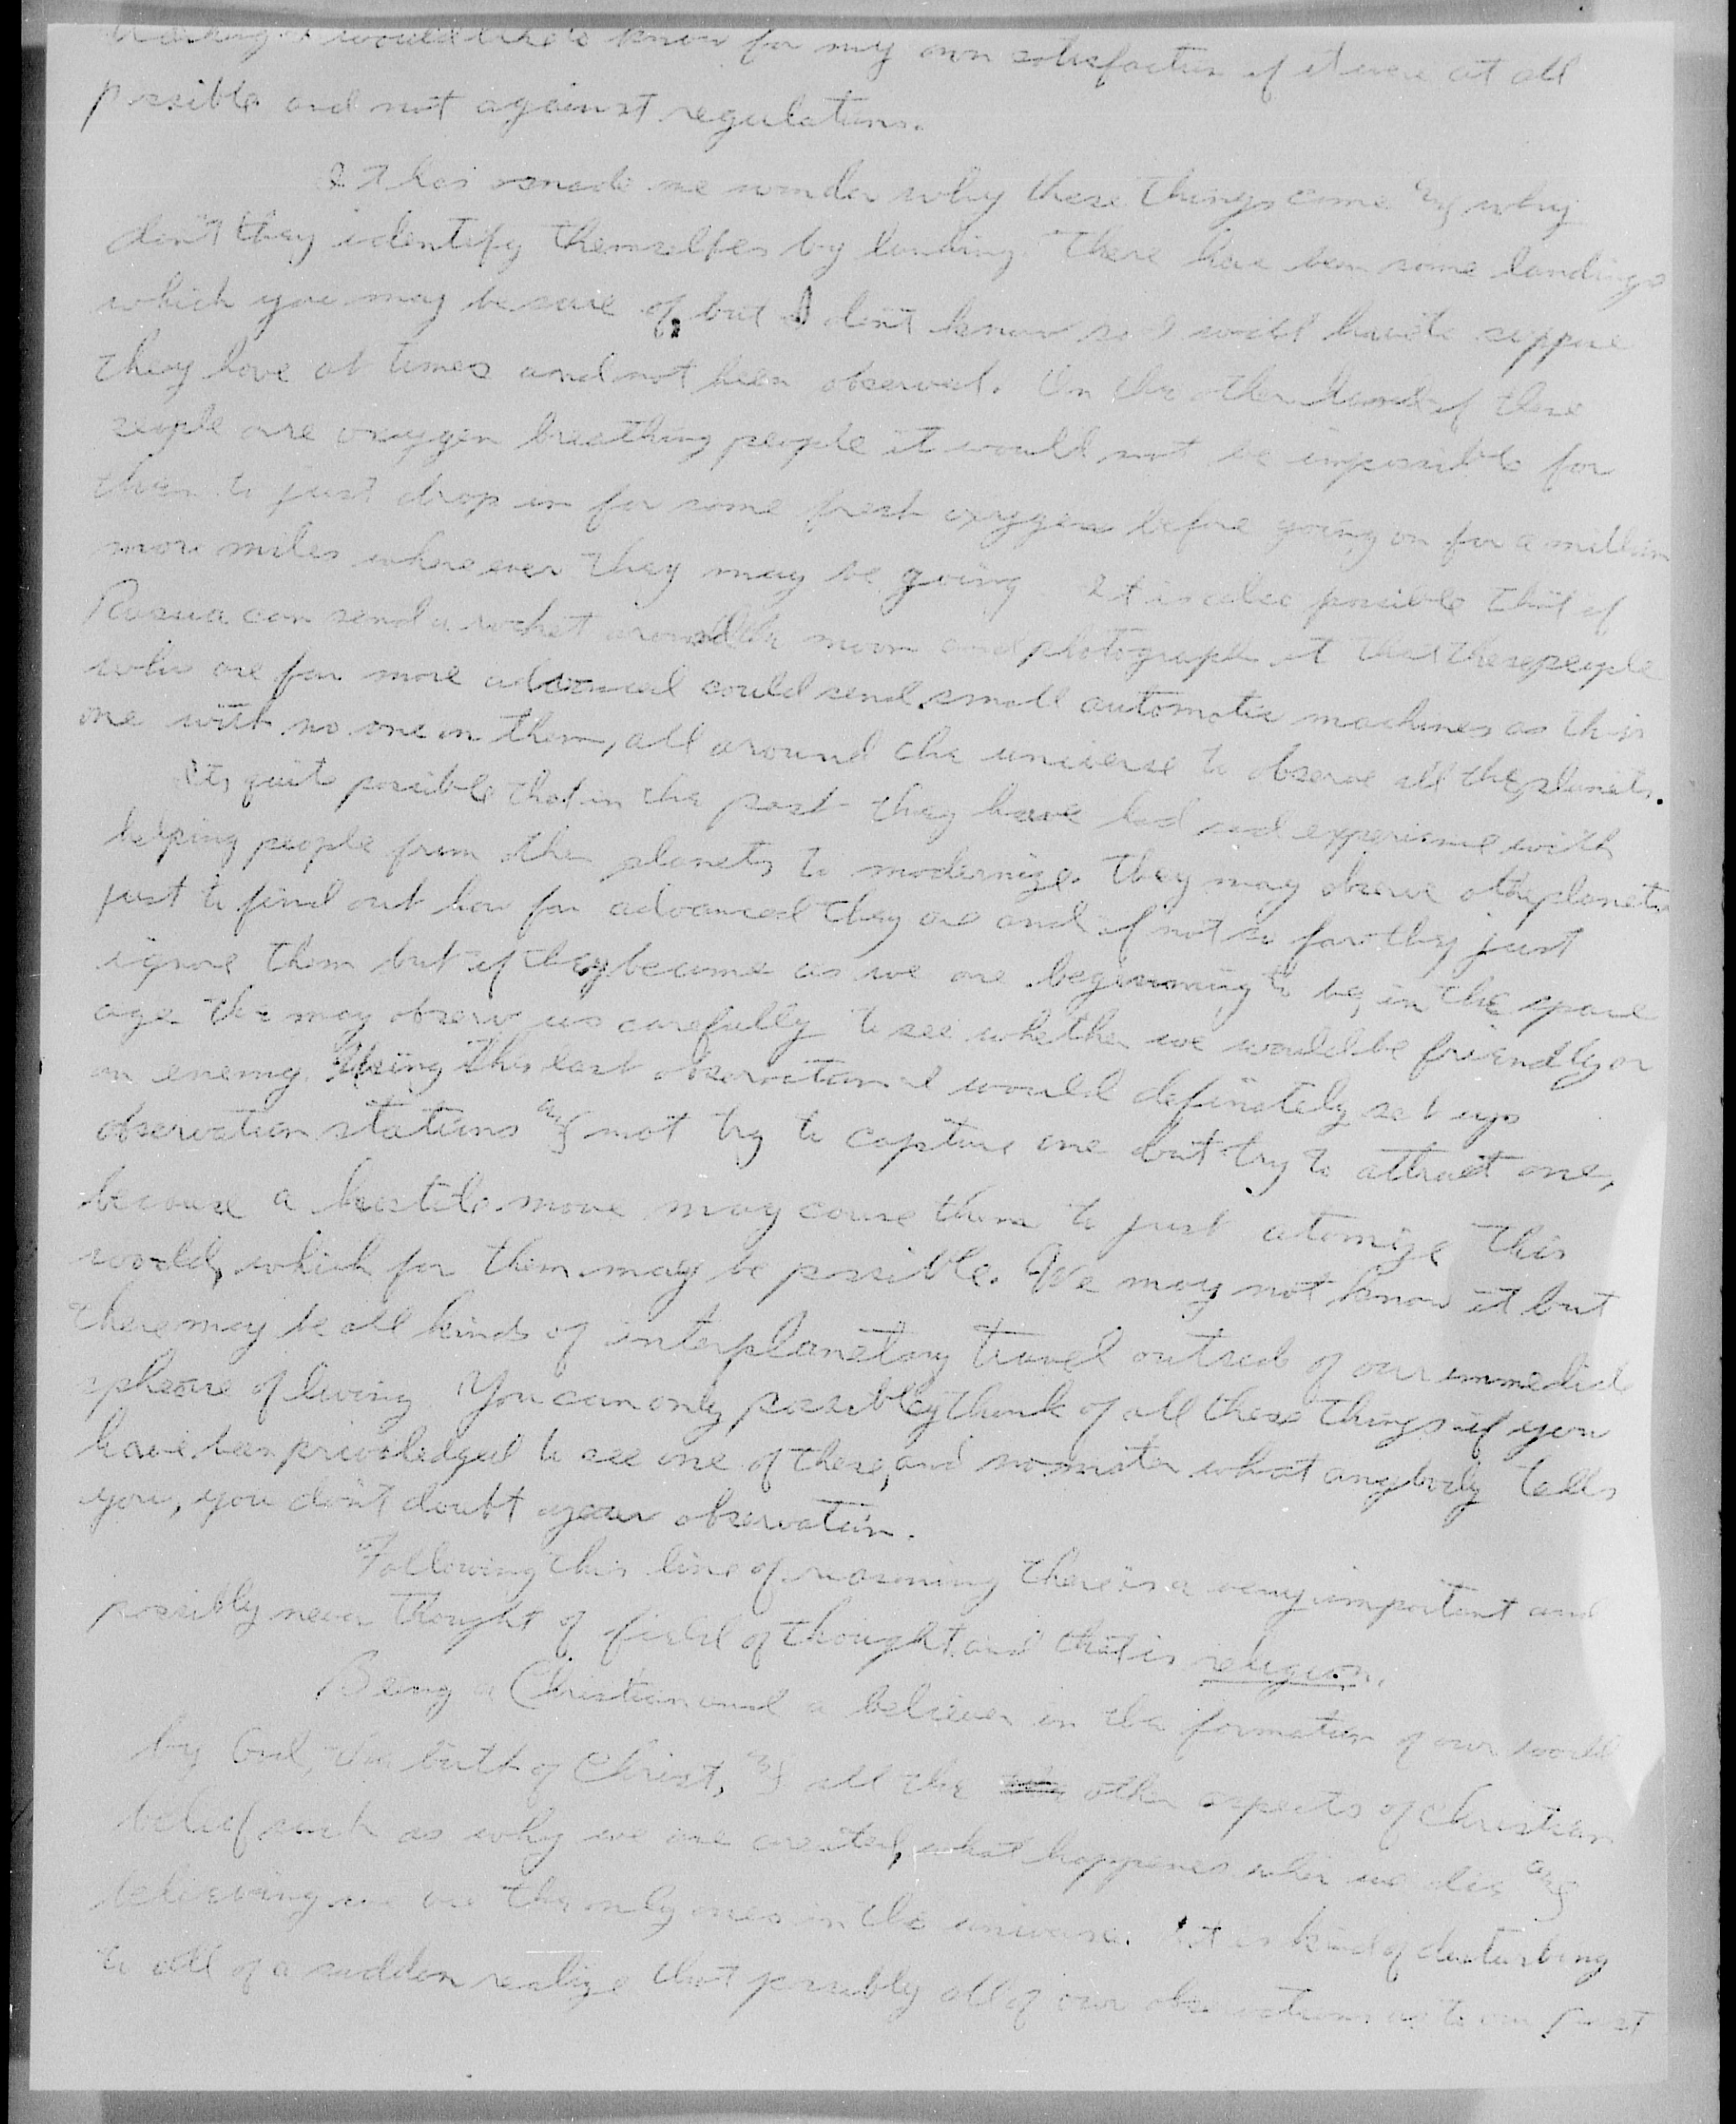 would like to know for my own satisfaction if it were at all
possible and not against regulations.
It has made me wonder why these things come & why
don't they identify themselfes by landing. There have been some landings
which you may be sure of, but I don't know so I will have to suppose
they have at times and not been observed. On the other hand if these
people are oxygen breathing people it would not be impossible for
them to just drop in for some fresh oxygen before going on for a million
more miles where ever they may be going. It is also possible that if
Russia can send a rocket around the moon and photograph it that these people
who are far more advanced could send small automatic machines as this
one with no one in them, all around the universe to observe all the planets.
Its quite possible that in the past they have had sad experience with
helping people from other planets to modernize. They may observe other planets
just to find out how far advanced they are and if not so far they just
ignore them but if they become as we are beginning to be, in the space
age the may observe us carefully to see whether we would be friendly or
an enemy. Using this last observation I would definitely set up
observation stations & not try to capture one but try to attract one,
because a hostile move may cause them to just atomize this
world, which for them may be possible. We may not know it but
there may be all kinds of interplanetary travel outside of our immediate
spheare of living. You can only possibly think of all these things if you
have been priviledged to see one of these, and no mater what anybody tells
you, you don't doubt your observation.
Following this line of reasoning there is a very important and
possibly never thought of field of thought and that is religion.
Being a Christian and a believer in the formation of our world
by God, the birth of Christ, & all the other aspects of Christian
belief such as why we are created, what happenes when we die &
believing we are the only ones in the universe. It is kind of disturbing
to all of a sudden realize that possibly all of our observations as to our past